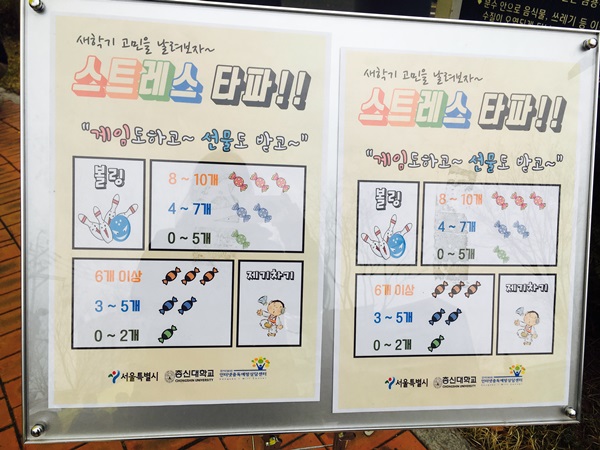 새학기 고민을 날려보자~
스트레스 타파!!
"게임도하고~ 선물도 받고~"
볼링
8 ~ 10개
4 ~ 7개
0 ~ 5개
6개 이상
3 ~ 5개
0 ~ 2개
제기차기
서울특별시
총신대학교
CHONGSHIN UNIVERSITY
새학기 고민을 날려보자~
스트레스 타파!!
"게임도하고~ 선물도 받고~"
볼링
8 ~ 10개
4 ~ 7개
0 ~ 5개
6개 이상
3 ~ 5개
0 ~ 2개
제기차기
서울특별시
총신대학교
CHONGSHIN UNIVERSITY
분수 안으로 음식물, 쓰레기 등 이